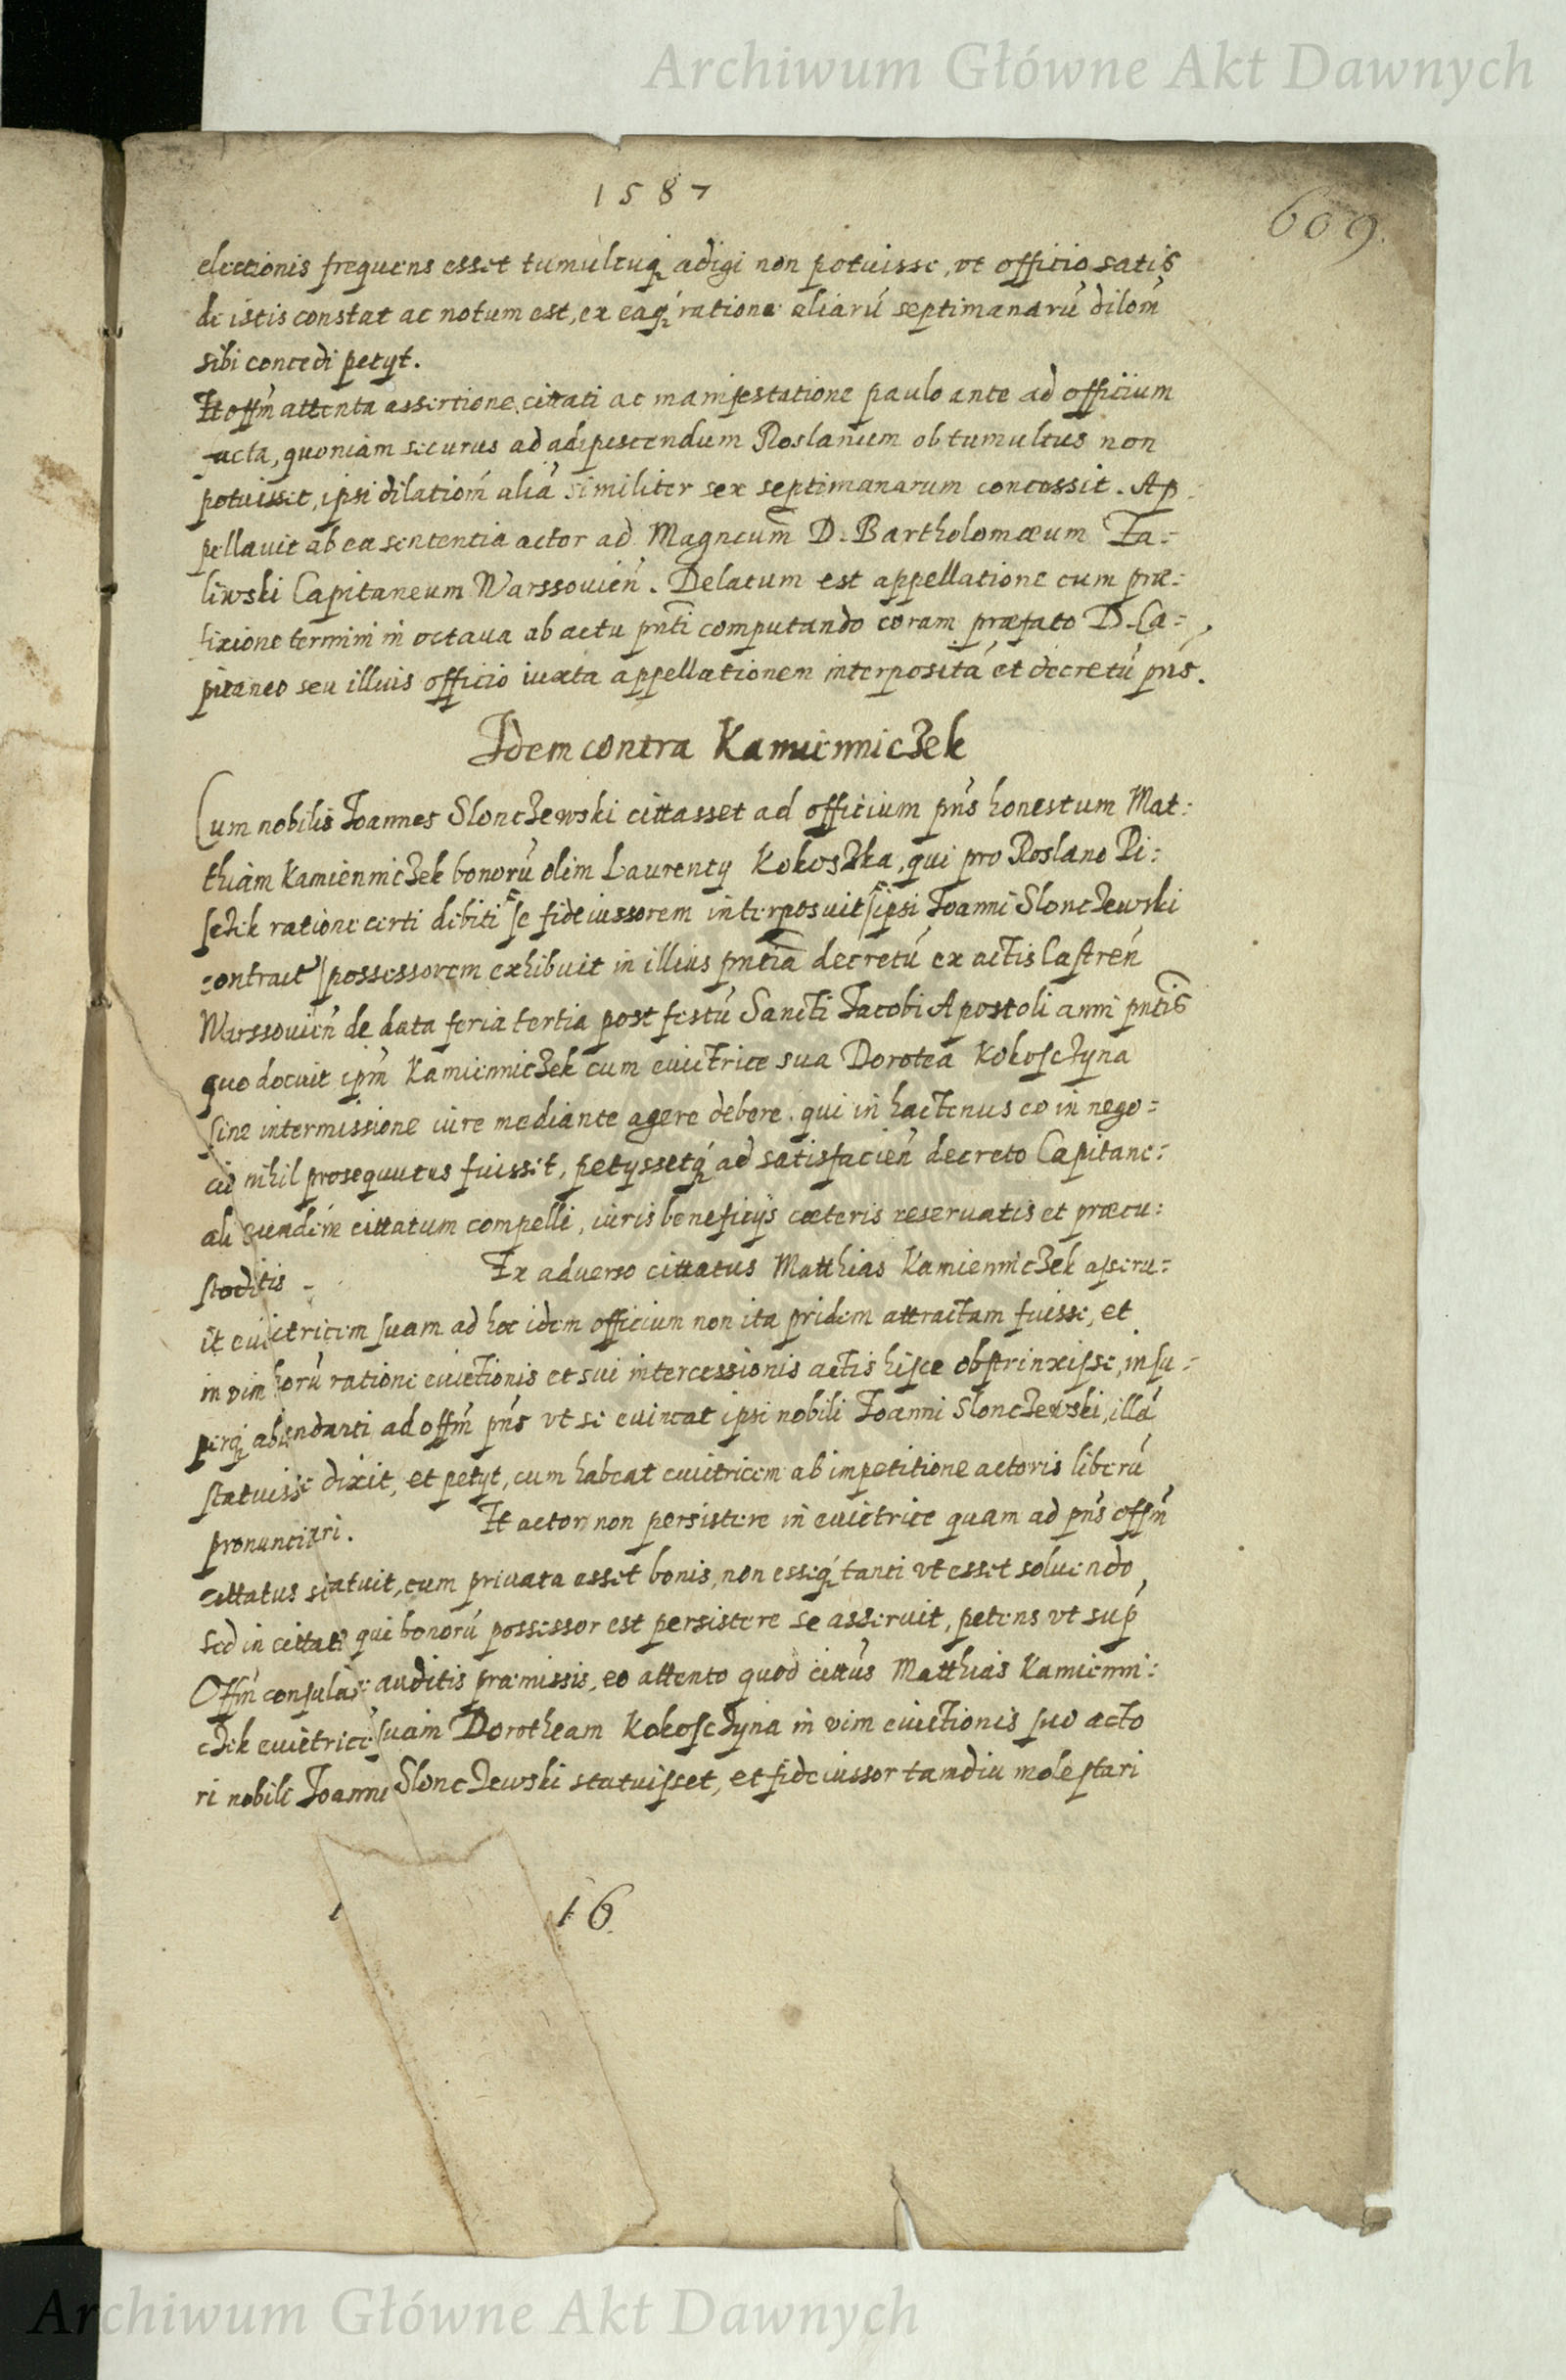 Archiwum Główne Akt Dawnych
1587
609.
electionis frequens esset tumultuq; adigi non potuisse, vt officio satis
de istis constat ac notum est, ex eaq; ratione aliarū septimanarū dilōm̄
sibi concedi petyt.
Et offm̄ attenta assertione citati ac manifestatione paulo ante ad officium
facta, quoniam securus ad adipiscendum Roslanum ob tumultus non
potuisset, ipsi dilationē aliā similiter sex septimanarum concessit. Ap-
pellauit ab ea sententia actor ad Magncum D. Bartholomæum Za=
liwski Capitaneum Warssouien̄. Delatum est appellatione cum præ=
fixione termini in octaua ab actu pn̄ti computando coram præfato D. Ca=
pitaneo seu illius officio iuxta appellationem interpositā et decretū pn̄s.
Idem contra Kamienniczek
Cum nobilis Joannes Slonczewski cittasset ad officium pn̄s honestum Mat=
thiam Kamienniczek bonorū olim Laurenty Kokoszka, qui pro Roslano Pi=
sczek ratione certi debiti se fideiussorem interposuit ipsi Joanni Slonczewski
contract possessorem exhibuit in illius pn̄tiā decretū ex actis Castren̄
Warssouien̄ de data feria tertia post festū Sancti Jacobi Apostoli anni pn̄tis
quo docuit ipm̄ Kamienniczek cum euictrice sua Dorotea Kokosczyna
sine intermissione iure mediante agere debere. qui in hactenus eo in nego=
cio nihil prosequutus fuisset, petyssetq; ad satisfacien̄ decreto Capitane=
ali eundem cittatum compelli, iuris beneficijs cæteris reseruatis et præcu=
stoditis -
Ex aduerso cittatus Matthias Kamienniczek asseru=
it euictricem suam ad hoc idem officium non ita pridem attractam fuisse, et
in vim horū ratione euictionis et sui intercessionis actis hisce obstrinxisse, insu=
perq; abundanti ad offm̄ pn̄s vt se euincat ipsi nobili Joanni Slonczewski, illā
statuisse dixit, et petyt, cum habeat euictricem ab impetitione actoris liberū
pronunciari.
Et actor non persistere in euictrice quam ad pn̄s offm̄
cittatus statuit, cum priuata esset bonis, non esseq; tanti vt esset soluendo,
sed in cittato qui bonorū possessor est persistere se asseruit, petens vt sup̄
Offm̄ consulare auditis præmissis, eo attento quod cittūs Matthias Kamienni=
czek euictricē suam Dorotheam Kokosczyna in vim euictionis suo acto
ri nobili Joanni Slonczewski statuisset, et fideiussor tamdiu molestari
1 16
Archiwum Główne Akt Dawnych